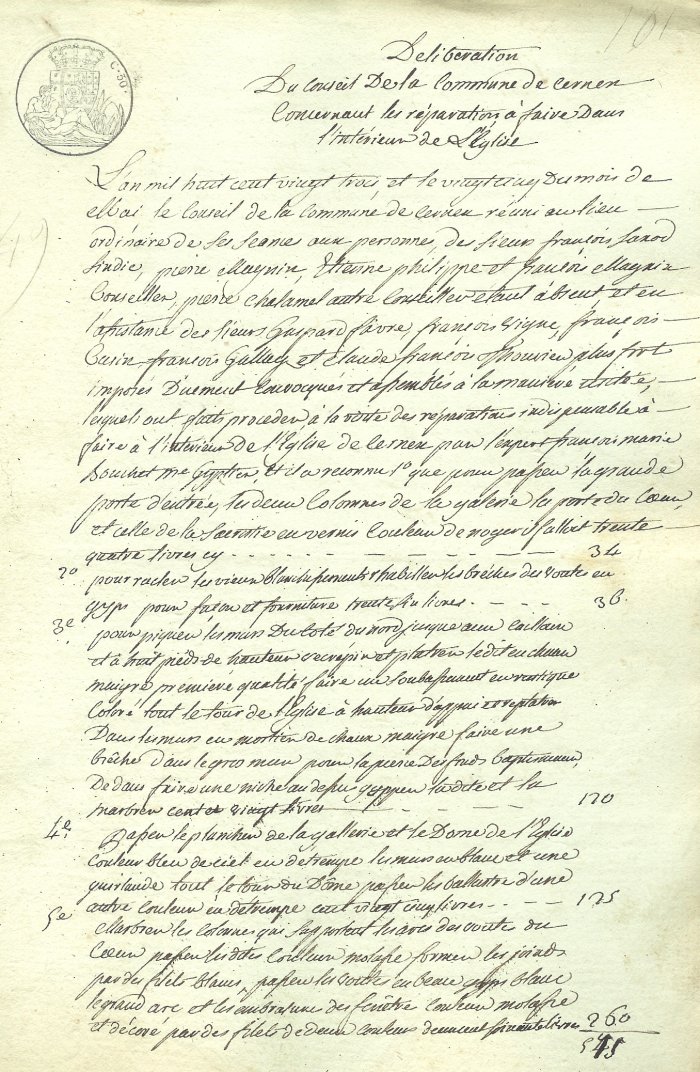 101
C. 50
Deliberation
Du Conseil De la Commune de Cernex
Concernant les réparation à faire Dans
l'intérieur de L'Eglise
L'an mil huit cent vingt trois et le vingt cinq Du mois de
Mai le Conseil de la Commune de Cernex réuni au lieu
ordinaire de ses séance aux personnes, des sieurs françois
Sindic, pierre Magnin, Etienne philippe et françois Magnin
Conseiller, pierre Chalamel autre Conseiller etant absent et en
l'assistance des sieurs Gaspard favre, françois vigne, françois
Cusin françois Gallay et Claude françois Thouvier plus fort
imposés Duement Convocques et assemblés à la maniere usitée,
lesquels ont faits proceder à la visite des reparations indispensable à
faire à l'intérieur De l'Eglise de Cernex par l'expert françois marie
Bouchet me Gyptier, et il a reconnu 1o que pour passer la grande
porte d'entrée, les deux Colonnes de la galerie la porte du Cœur
et celle de la Sacristie en vernis Couleur de noyer il fallait trente
quatre livres cy 34
2o
pour racler les vieux blanchissements rhabiller les brêches des voutes en
gyps pour façon et fourniture trente six livres 36
3e
pour piquer les murs Du Coté du nord jusque au
et à huit pieds de hauteur recrepir et platrir ledit en chaux
maigre premiere qualité faire un Soubassement en rustique
Coloré tout le tour de l'Eglise à hauteur d'appui et
Dans les murs en mortier de chaux maigre faire une
brêche dans le gros mur pour la pierre Des fonds baptismaux,
De dans faire une niche au dessus gypper la dite et la
marbrer cent et vingt livres 120
4e
Passer le plancher de la gallerie et le Dome de l'Eglise
Couleur bleu de ciel en detrempe les murs en blanc et une
guirlande tout le tour du Dôme passer les ballustre d'une
autre Couleur en detrempe cent vingt cinq livres 125
5e
Marbrer les Colonnes qui supportent les arcs des voutes du
Cœur passer les dites Couleur molasse former les joints
par des filets blancs, passer les voutes en beau gyps blanc
le grand arc et les embrasures des fenêtre Couleur molasse
et décoré par des filets de deux Couleurs deux cent soixante livres 260